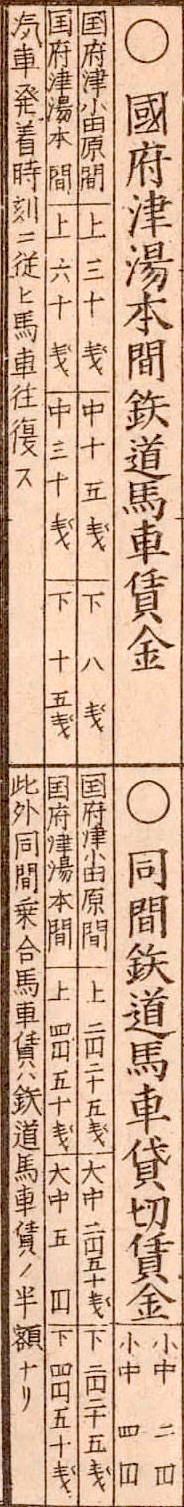 ○ 國府津湯本間鉄道馬車賃金
国府津小田原間 上 三十銭 中 十五銭 下 八銭
国府津湯本間 上 六十銭 中 三十銭 下 十五銭
汽車発着時刻ニ従ヒ馬車往復ス
○ 同間鉄道馬車貸切賃金
小中 二円
小中 四円
国府津小田原間 上 二円二十五銭 大中 二円五十銭 下 二円二十五銭
国府津湯本間 上 四円五十銭 大中 五円 下 四円五十銭
此外同間乗合馬車賃ハ鉄道馬車賃ノ半額ナリ